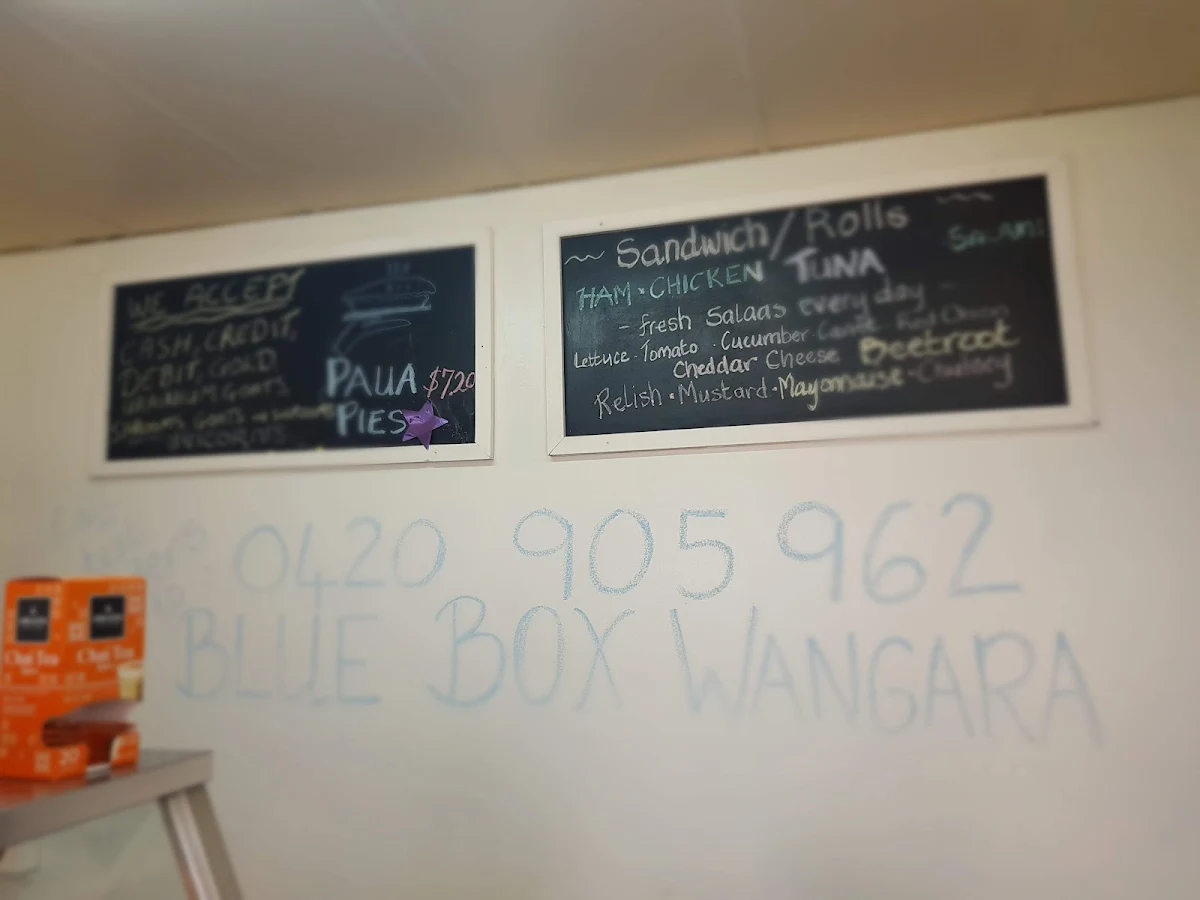 WE ACCEPT
CASH, CREDIT,
DEBIT, GOLD
PAUA $7.20
PIES
~ Sandwich/Rolls ~
HAM · CHICKEN TUNA SALAMI
- fresh Salads every day -
Lettuce · Tomato · Cucumber · Carrot Red Onion
Cheddar Cheese Beetroot
Relish · Mustard · Mayonaise · Chutney
0420 905 962
BLUE BOX WANGARA
Chai Tea Chai Tea
20